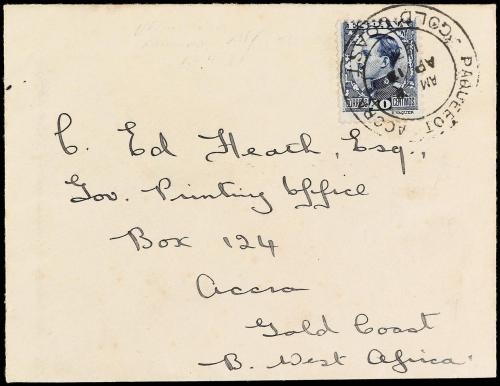 PAQUEBOT ACCRA
GOLD COAST
AM
AP 13
1 CENTIMOS
C. Ed Heath, Esq.,
Gov. Printing Office
Box 124
Accra
Gold Coast
B. West Africa.